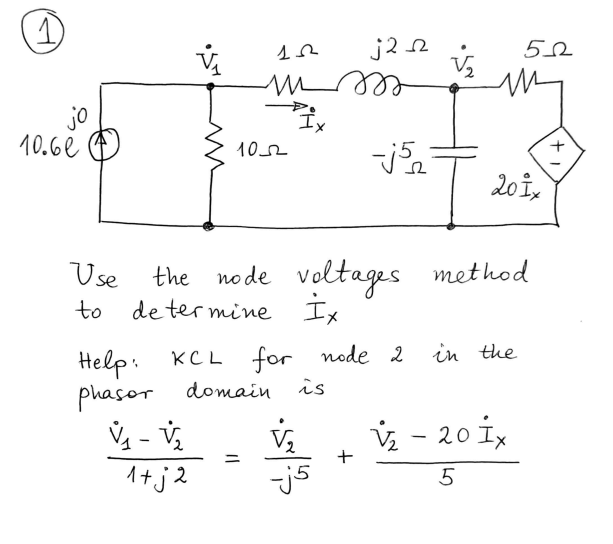 1
V̇₁ 1Ω j2Ω V̇₂ 5Ω
10.6e^j0
İₓ
10Ω
-j5Ω
+
-
20İₓ
Use the node voltages method
to determine İₓ
Help: KCL for node 2 in the
phasor domain is
(V̇₁ - V̇₂)/(1+j2) = V̇₂/(-j5) + (V̇₂ - 20İₓ)/5